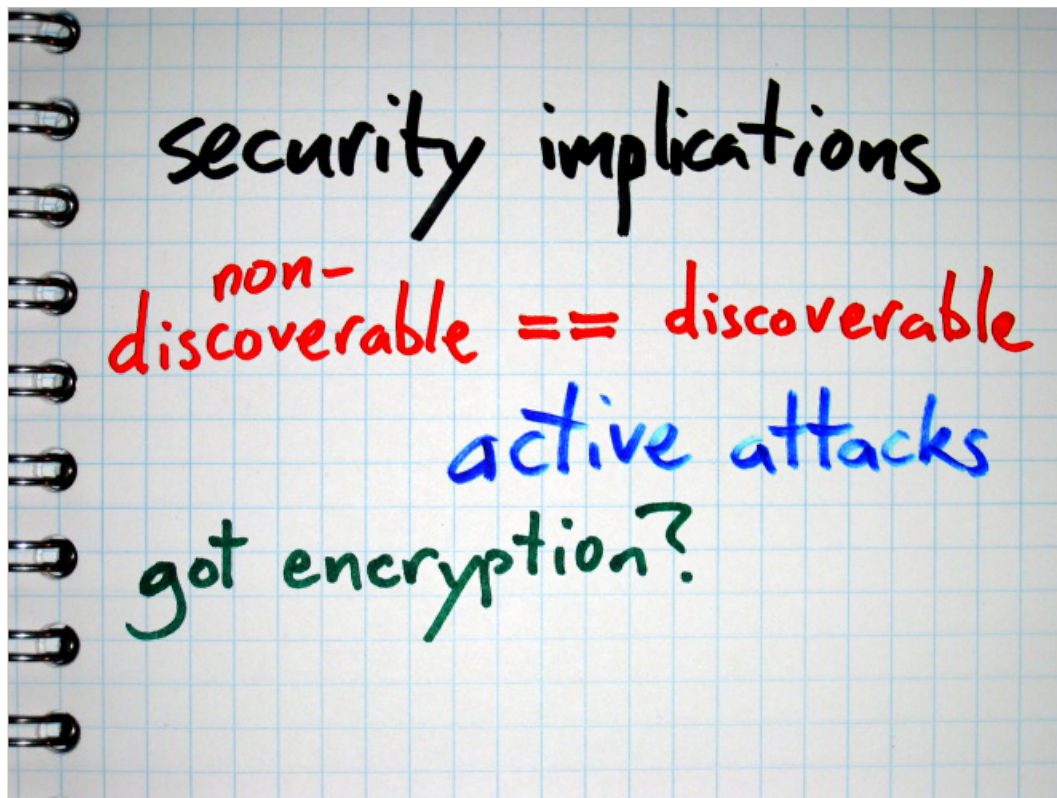 security implications
non-
discoverable == discoverable
active attacks
got encryption?